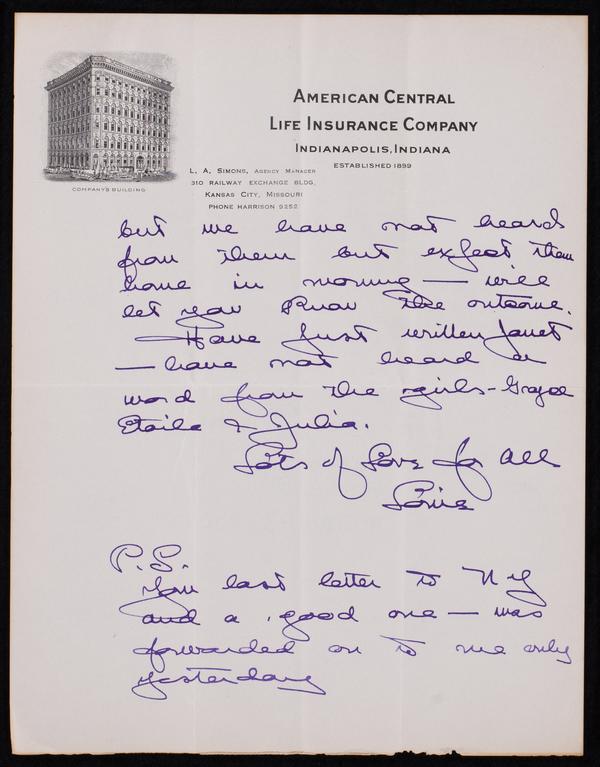 AMERICAN CENTRAL
LIFE INSURANCE COMPANY
INDIANAPOLIS, INDIANA
ESTABLISHED 1899
COMPANY'S BUILDING
L. A. SIMONS, AGENCY MANAGER
310 RAILWAY EXCHANGE BLDG.
KANSAS CITY, MISSOURI
PHONE HARRISON 9252
but we have not heard
from them but expect them
home in morning — will
let you know the outcome.
Have just written Janet
— have not heard a
word from the girls -
& Julia.
Lots of Love for All
P.S.
Your last letter to N Y
and a good one — was
forwarded on to me only
yesterday